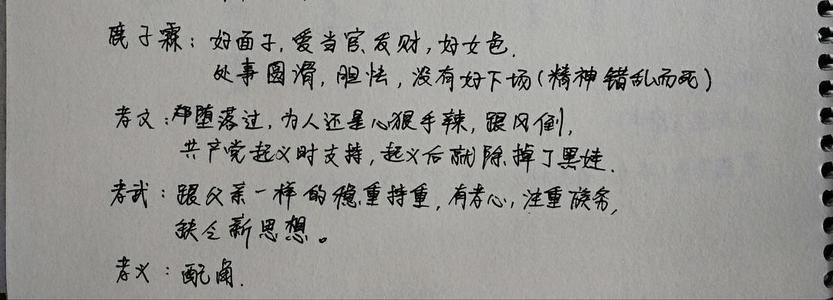 鹿子霖：好面子，爱当官发财，好女色．
处事圆滑，胆怯，没有好下场（精神错乱而死）
孝文：堕落过，为人还是心狠手辣，跟风倒，
共产党起义时支持，起义后就除掉了黑娃．
孝武：跟父亲一样的稳重持重，有孝心，注重族务，
缺乏新思想。
孝义：配角．